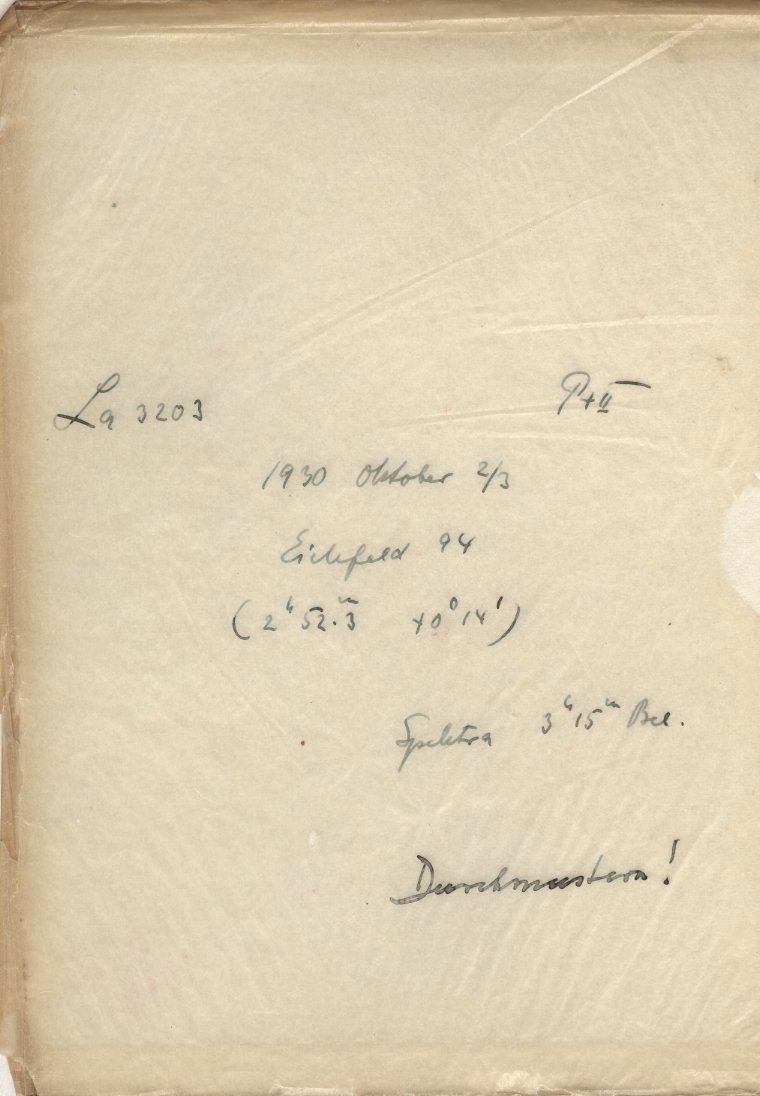 La 3203 P+II
1930 Oktober 2/3
Eichfeld 94
(2ʰ52.ᵐ3 +0⁰14')
Spektra 3ʰ15ᵐ Bel.
Durchmustern!